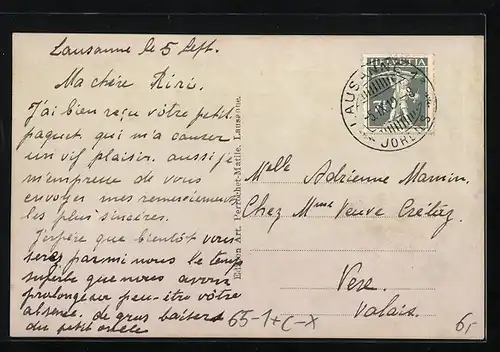 Lausanne le 5 Sept.
Ma chère Riri.
J'ai bien reçu vôtre petit
paquet qui m'a causer
un vif plaisir. aussi je
m'emprense de vous
envoyer mes remerciements
les plus sincères.
J'espère que bientôt vous
serez parmi nous le temp
superbe que nous avons
prolongeau peu-être vôtre
absence. de gros baisers
du petit oncle
Edition Art. Perrochet-Matile, Lausanne.
HELVETIA
LAUSANNE
Melle Adrienne Mamin.
Chez Mme Veuve
Vexe.
Valais.
65-1+C-X
6.-